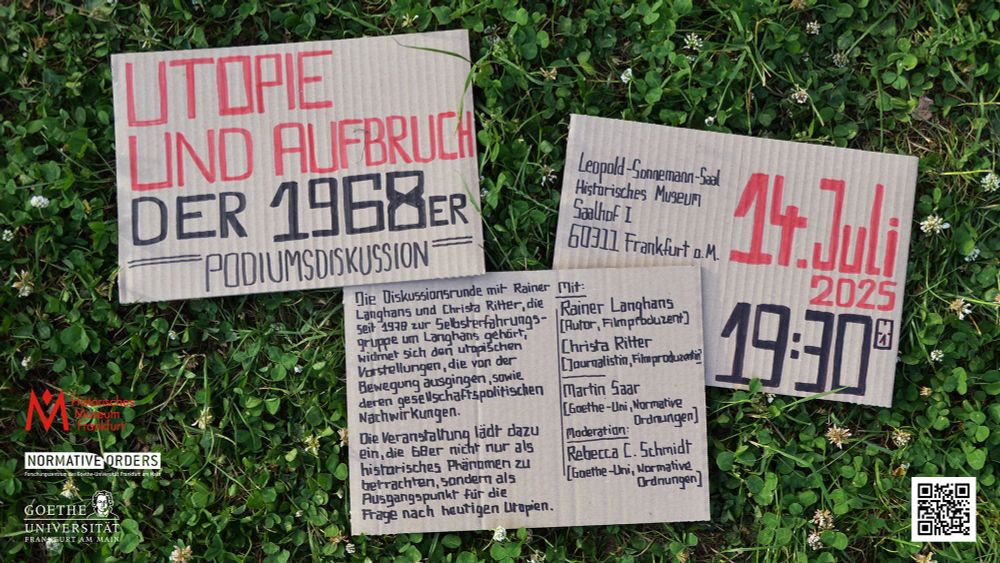 UTOPIE
UND AUFBRUCH
DER 1968ER
PODIUMSDISKUSSION
Leopold-Sonnemann-Saal
Historisches Museum
Saalhof 1
60311 Frankfurt a.M.
14. Juli
2025
19:30
Die Diskussionsrunde mit Rainer
Langhans und Christa Ritter, die
seit 1978 zur Selbsterfahrungs-
gruppe um Langhans gehört,
widmet sich den utopischen
Vorstellungen, die von der
Bewegung ausgingen, sowie
deren gesellschaftspolitischen
Nachwirkungen.
Die Veranstaltung lädt dazu
ein, die 68er nicht nur als
historisches Phänomen zu
betrachten, sondern als
Ausgangspunkt für die
Frage nach heutigen Utopien.
Mit:
Rainer Langhans
[Autor, Filmproduzent]
Christa Ritter
[Journalistin, Filmproduzentin]
Martin Saar
[Goethe-Uni, Normative
Ordnungen]
Moderation:
Rebecca C. Schmidt
[Goethe-Uni, Normative
Ordnungen]
Historisches
Museum
Frankfurt
NORMATIVE ORDERS
Forschungszentrum der Goethe-Universität Frankfurt am Main
GOETHE
UNIVERSITÄT
FRANKFURT AM MAIN